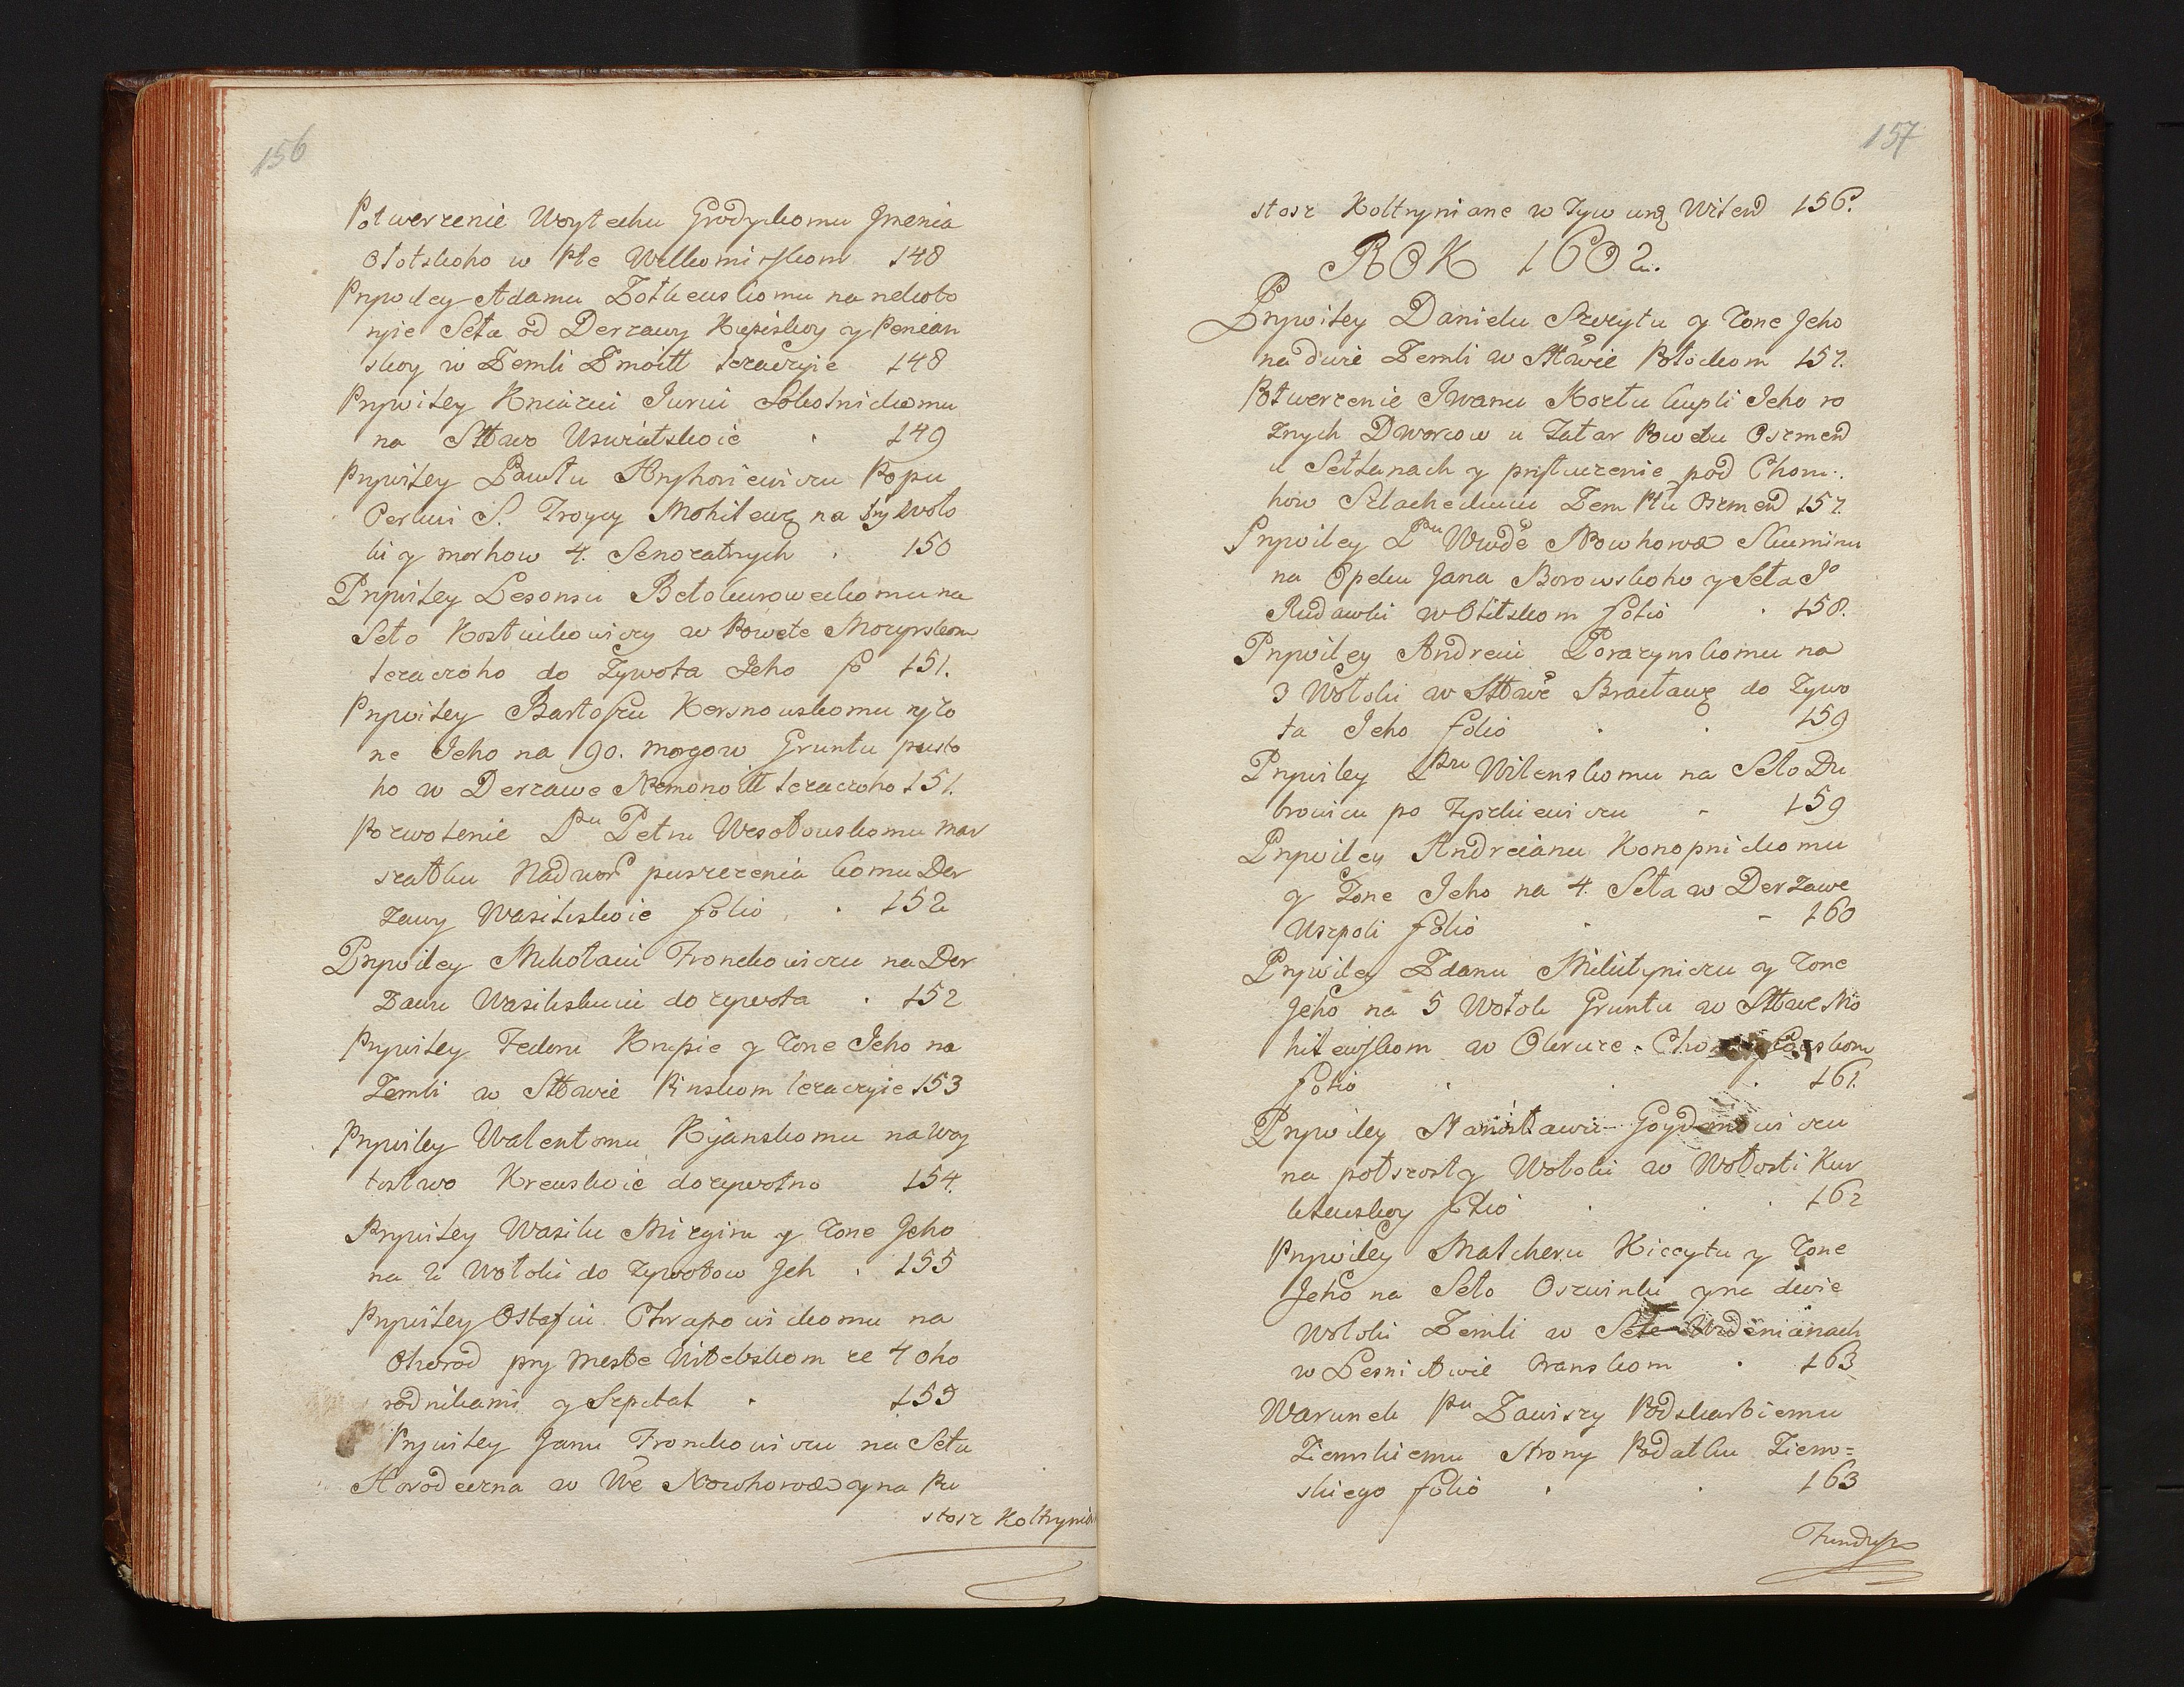 156
Potwerzenie Woytechu Grodyckomu Jmenia
Ototskoho w Pte Wilkomirskom 148
Prywiley Adamu Zotkeuskomu na nekoto
ryie Seła od Derzawy Kupiskoy y Penian
skoy w Zemli Zmoitt lezaczyie 148
Prywiley Kniaziu Juriu Sokolnickomu
na Sttwo Uswiatskoie 149
Prywiley Pawłu Hryhoriewiczu Popu
Cerkwi S. Troycy Mohilewg na try Woło
ki y morhow 4. Senozatnych 150
Prywiley Lesonsu Betokurowcckomu na
Seło Kostiukowiczy w Powete Mozyrskom
lezaczoho do Zywota Jeho fo 151.
Prywiley Bartoszu Kersnowskomu y zo
ne Jeho na 90. morgow Gruntu pusto
ho w Derzawe Nemonoitt lezaczoho 151.
Pozwolenie Pnu Petru Wesołouskomu mar
szałku Nadwor puszczenia komu Der
zawy Wasiliskoie folio 152
Prywiley Mikołaiu Fronckowiczu na Der
Zawu Wasiliskuiu do zywota 152
Prywiley Fedoru Krupie y Zone Jeho na
Zemli w Sttwie Pinskom lezaczyie 153
Prywiley Walentomu Kijanskomu na Woy
tostwo Krewskoie dozywotno 154.
Prywiley Wasilu Miryinu y Zone Jeho
na 2 Wołoki do Zywotow Jeh 155
Prywiley Ostafiu Chrapowickomu na
Ohorod pry meste Witebskom ze 4 oho
rodnikami y Szpital 155
Prywiley Janu Fronckowiczu na Seła
Horodeczna w We Nowhorod y na Pu
stosz Koltrynian
157
stosz Koltryniane w Tywung Wilend 156.
ROK 1602.
Prywiley Danielu Szczytu y Zone Jeho
na dwie Zemli w Sttwie Połockom 157.
Potwerzenie Jwanu Kozłu kupli Jeho ro
znych Dworcow u Tatar Powetu Oszmend
u Sełtanach y prysłuczenie pod Chom:
how Szlacheckuiu Zem Ptu Oszmend 157.
Prywiley Pnu Wwde Nowhorod Skuminu
na Opeku Jana Borowskoho y Seła Jo
Rudawki w Olitskom folio 158.
Prywiley Andreiu Porazynskomu na
3 Wołoki w Sttwe Bracławg do Zywo
ta Jeho folio 159
Prywiley Bpu Wilenskomu na Seło Du
browicu po Tyszkiewiczu 159
Prywiley Andreianu Konopnickomu
y Zone Jeho na 4. Seła w Derzawe
Uszpoli folio 160
Prywiley Zdanu Milutyniczu y Zone
Jeho na 5 Wołok Gruntu w Sttwe Mo
hilewskom w Okruze
folio 161.
Prywiley Stanisławu Goydemowiczu
na połszosty Wołoki w Wołosti Kur
klewskoy folio 162
Prywiley Matcheru Kiccytu y Zone
Jeho na Seło Oszwinki y na dwie
Wołoki Zemli w Sele Urdenianach
w Lesnictwie Branskom 163
Warunek Pnu Zawiszy Podskarbiemu
Ziemskiemu Strony Podatku Ziem=
skiego folio 163
Fundusz